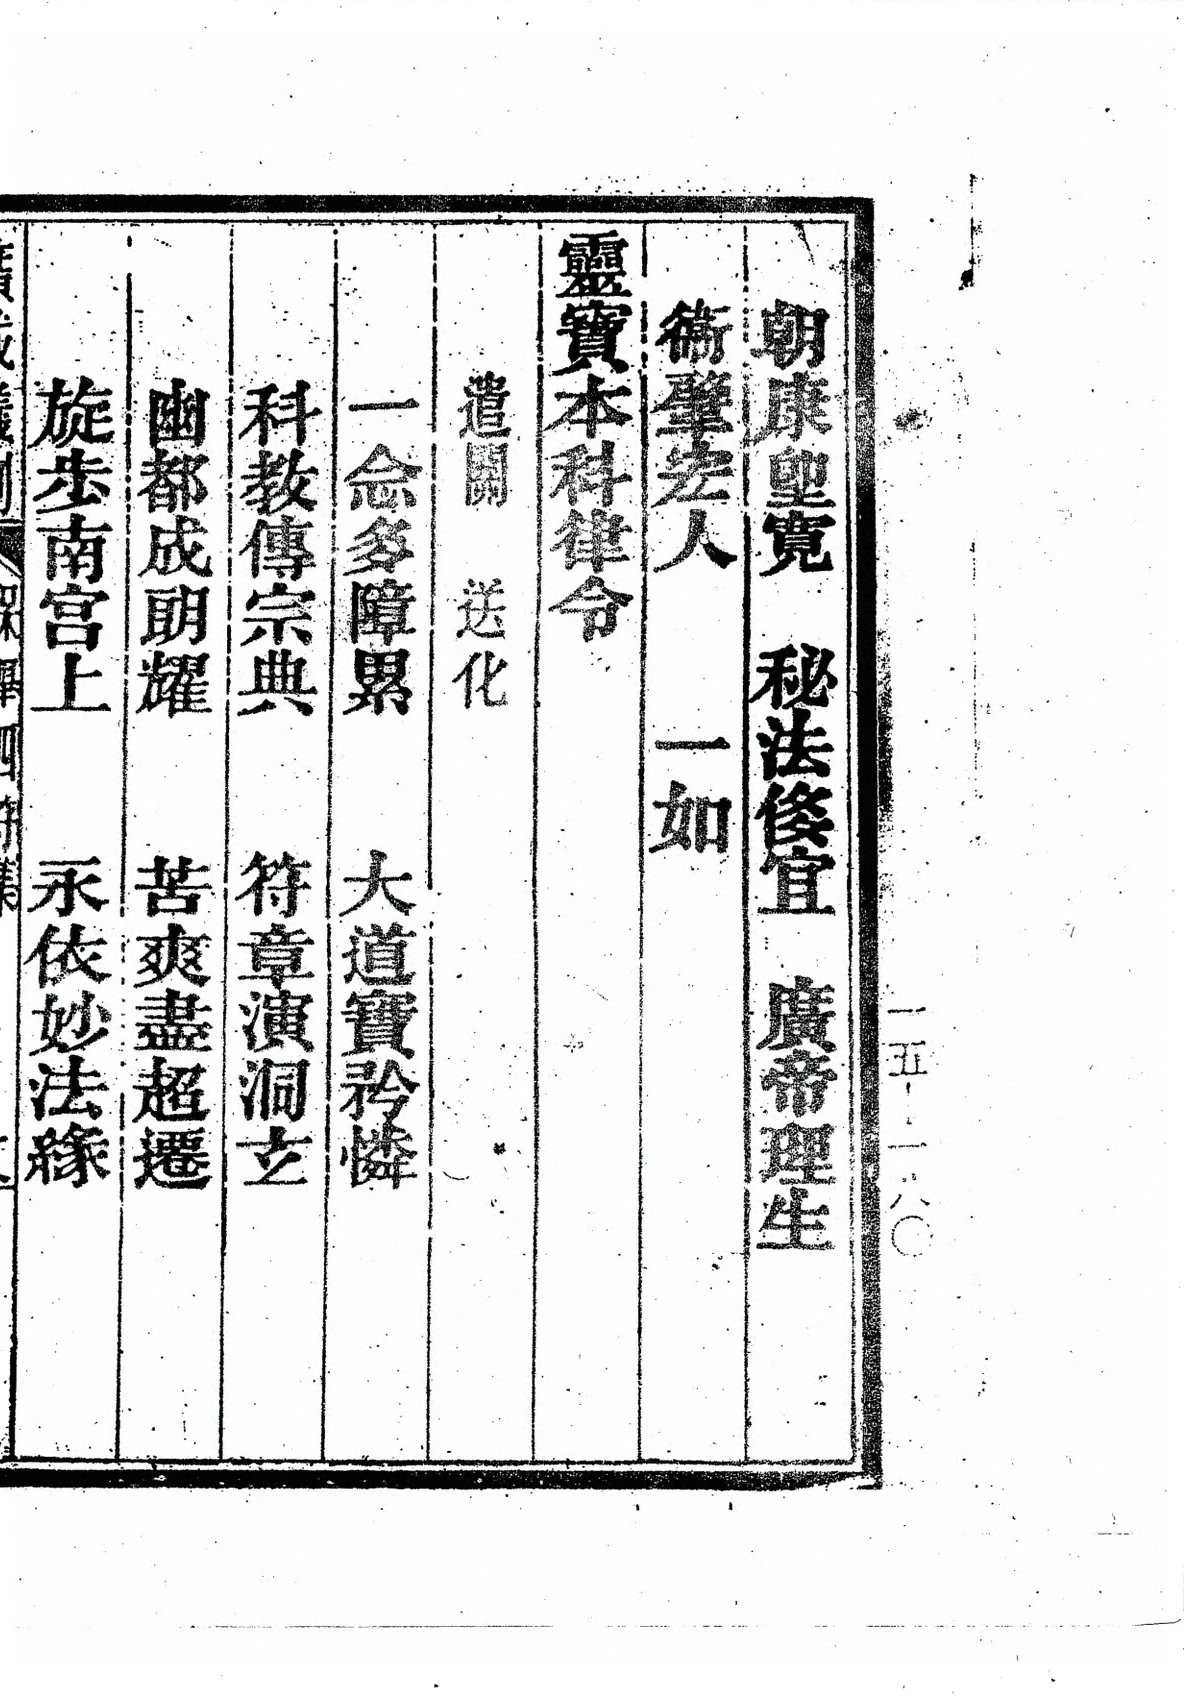 朝康聖寬　秘法倐宜　廣帝理生
衞肇宏人　一如
靈寶本科律令
遣關　送化
一念多障累　大道寶矜憐
科教傳宗典　符章演洞玄
幽都成朗耀　苦爽盡超遷
旋步南宮上　永依妙法緣
一五-一八〇